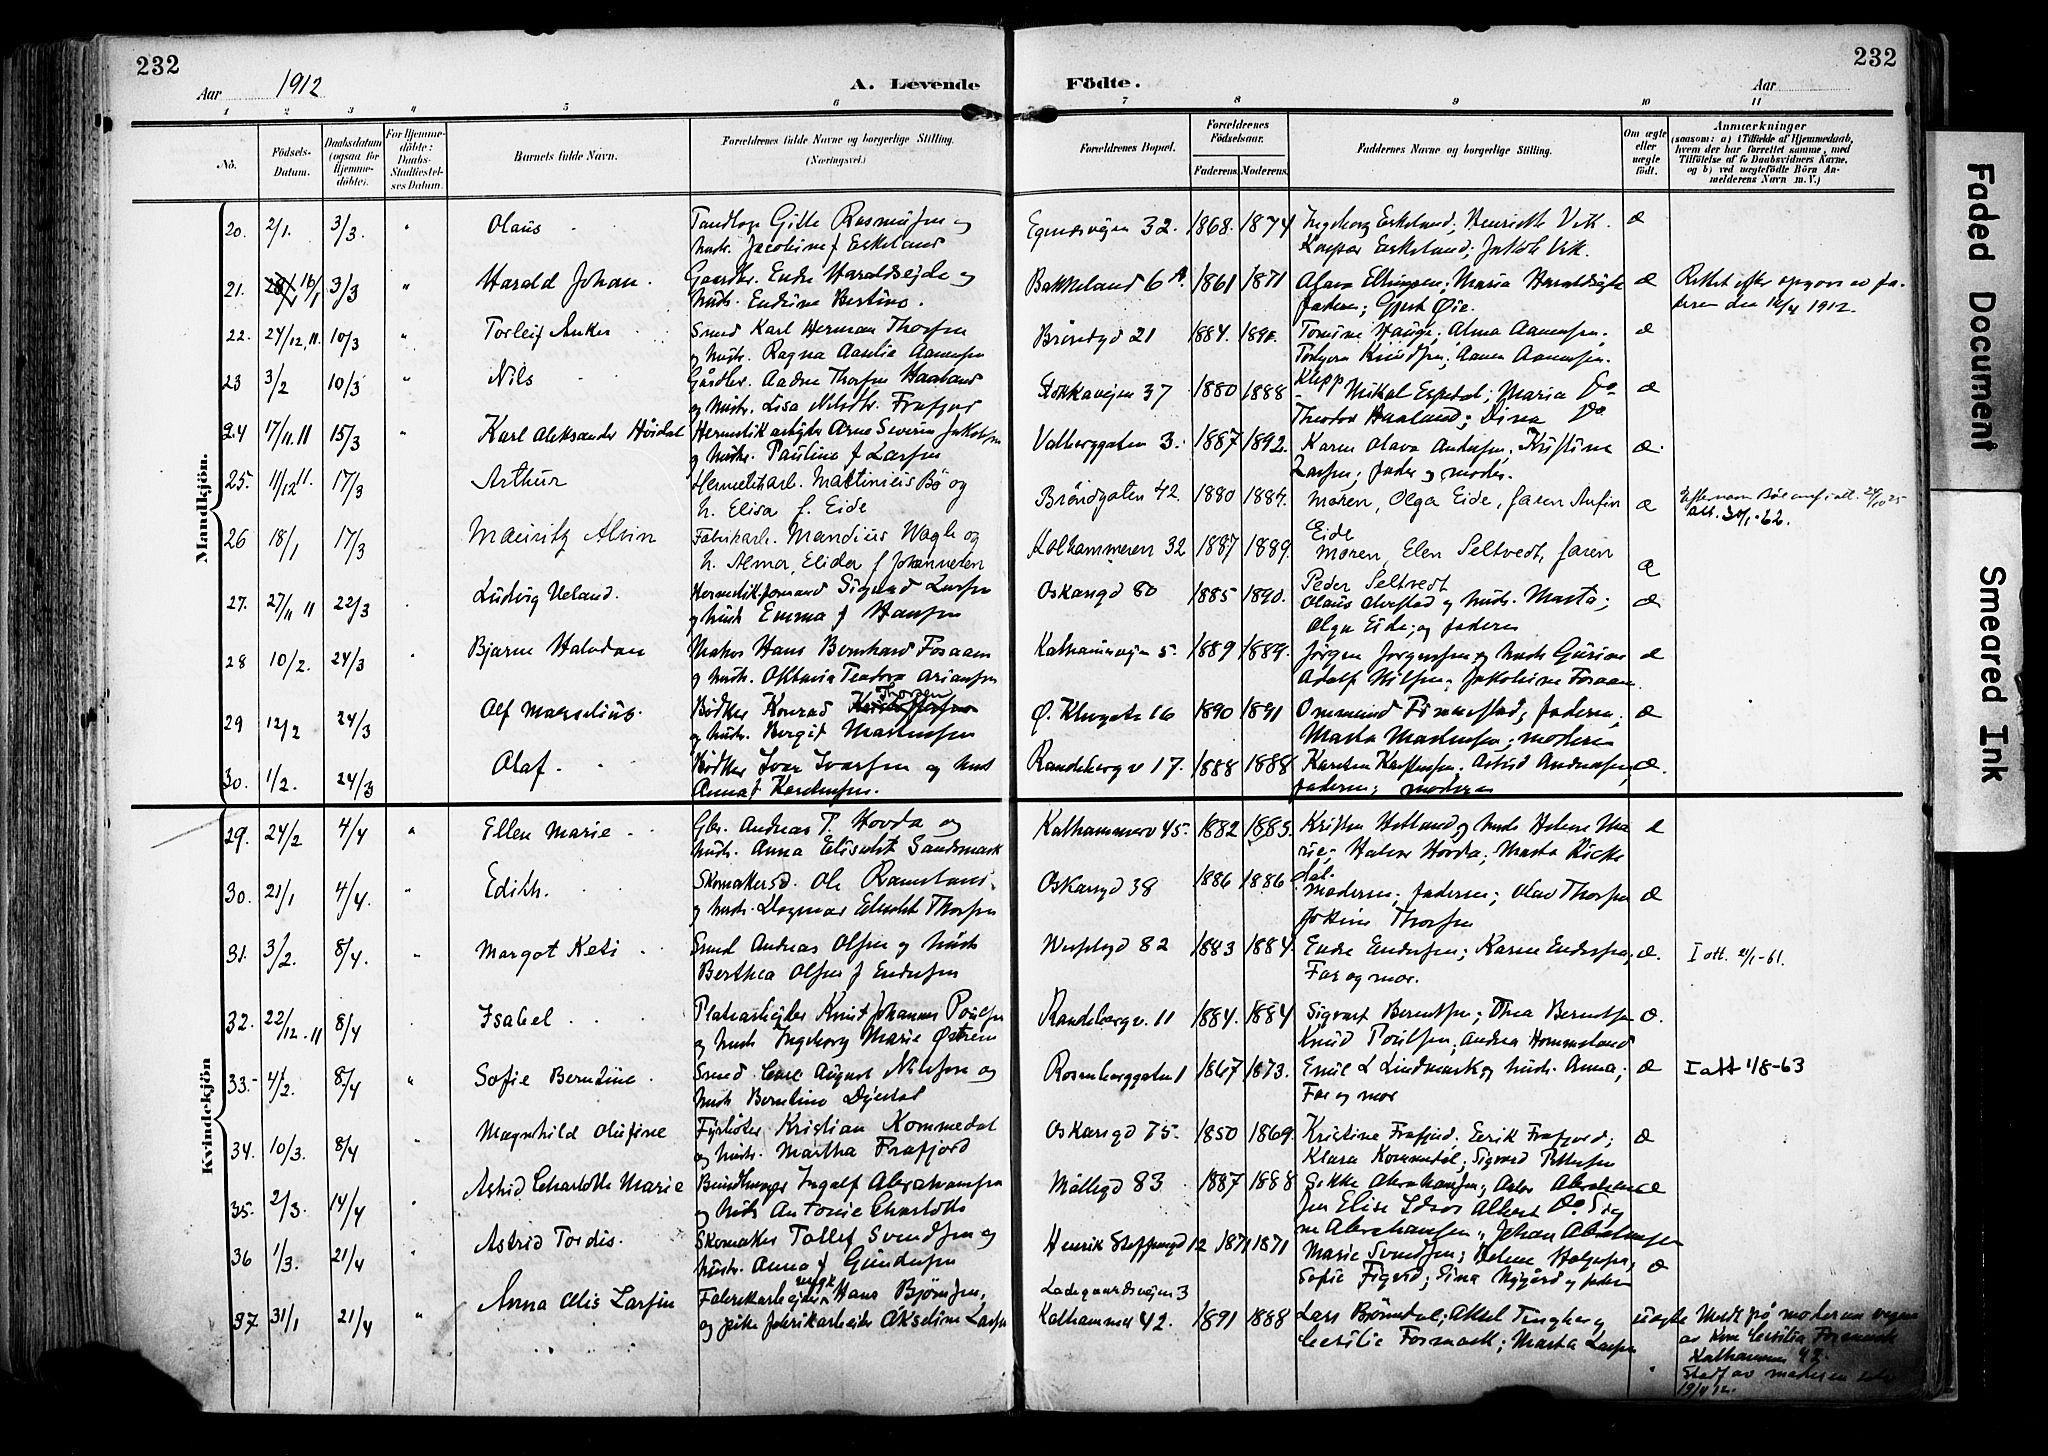 232
232
Aar 1912
A. Levende
Födte.
Aar
1 2 3 4 5 6 7 8 9 10 11
No.
Födsels-Datum.
Daabsdatum (ogsaa for Hjemmedöbte).
For Hjemmedöbte: Daabs-Stadfæstelses Datum.
Barnets fulde Navn.
Forældrenes fulde Navne og borgerlige Stilling. (Næringsvei.)
Forældrenes Bopæl.
Forældrenes Födselsaar.
Faderens. Moderens.
Faddernes Navne og borgerlige Stilling.
Om ægte eller uægte födt.
Anmærkninger
(saasom: a) i Tilfælde af Hjemmedaab, hvem der har forrettet samme, med Tilföielse af to Daabsvidners Navne, og b) ved uægtefödte Börn Anmelderens Navn m. V.)
Mandkjön.
20. 2/1. 3/3. " Olaus Tandlæge Gitle Rasmussen og
hustr. Jacobine f Eskeland
Egenesveien 32. 1868. 1874 Ingeborg Eskeland; Henriette Vik.
Kaspar Eskeland; Jakob Vik. æ
21. 16/1 3/3 " Harald Johan. Gaardbr. Endre Haraldseide og
hustr. Endrine Bertine.
Bakkeland 6 A. 1861 1871 Maria Haraldseide æ
faderen; Gjert Øie.
Rettet efter opgave av faderen den 16/4 1912.
22. 27/12.11. 10/3 " Torleif Anker Smed Karl Herman Thorsen
og hustr. Ragna Aasilia Aanensen
Bröndgd 21 1884. Tomine Hauge; Alma Aanensen; æ
Torbjørn Knudsen; Aanen Aanensen.
23 3/2 10/3 " Nils Gårdbr. Aadne Thorsen Haaland
og hustr. Lisa Nilsdtr. Frafjord
Stokkaveien 37 1880 1888 Klepp Mikal Espedal; Maria Do æ
Theodor Haaland; Dina Do.
24 17/11.11 15/3 " Karl Aleksander Höidal Hermetikarbeider Arne Severin Jakobsen
og hustr. Pauline f Larsen
Valberggaten 3. 1887 1892. Karen Olava Andersen; Kristine æ.
Larsen; fader og moder.
25. 11/12 11. 17/3 Arthur Hermetikarb. Martinius Bö og
h. Elisa f. Eide
Bröndgaten 42. 1880 1884. Moren, Olga Eide, faren æ
Eide
26 18/1 17/3 Mauritz Alvin Fabrikarb. Mandius Wagle og
h. Alma, Elida f Johannesen
Kalhammeren 32 1887 1889. Moren, Elen Seltvedt, faren æ
Peder Seltvedt
27. 27/11 11 22/3 Ludvig Ueland. Hermetikformand Sigurd Larsen
og hustr Emma f Hansen
Oskarsgd 80 1885 1890. Olaus og hustr. Marta; æ
Olga Eide; og faderen
28 10/2. 24/3 Bjarne Halvdan Maler Hans Bernhard Fosaaen
og hustr. Oktavia Teodora Ariansen
Kalhammervejen 5. 1889 1889. Jörgen Jørgensen og hustr Gurine æ
Adolf Nilsen; Jakobine Fosaaen
29 12/2 24/3 Alf Marselius. Bödker Konrad Thorsen
og hustr. Bergit Martensen
16 1890 1891 Ommund faderen; æ
Marta Martensen; moderen
30. 1/2. 24/3 Olaf. Bödker Ivar Ivarsen og hust
Anna f Karstensen.
Randebergv 17. 1888 1888 Karsten Karstensen. Astrid Andreassen, æ.
faderen; moderen
Kvindekjön
29. 24/2 4/4 " Ellen Marie Gbr. Andreas P. Hovda og
hustr. Anna Elisabet Sandsmark
Kalhammerv 45. 1882 1883. Kristen Hetland og hustr Helene Marie; Halvor Hovda; Marta Kirkedal. æ
30. 21/1 4/4. " Edith. Skomakersv. Ole Ramsland
og hustr. Dagmar Elisabet Thorsen
Oskarsgd 38 1886 1886 moderen; faderen; Olav Thorsen æ
Thorsen
31. 3/2. 8/4. " Margot Keti Smed Andreas Olsen og hustr
Berthea Olsen f Endresen
82 1883 1884. Endre Endresen; Karen Endresen; æ.
Far og mor.
I att. 21/1-61.
32. 22/12.11 8/4 Isabel Platearbeider Knut Johannes Poulsen
og hustr Ingeborg Marie Östrem
Randebergv. 11 1884. 1884 Sigvart Berntsen; Thea Berntsen æ.
Knud Poulsen; Andrea Hommeland
33. 4/2. 8/4 " Sofie Berntine. Smed Carl August Nilssen og
hustr Berntine
Rosenberggaten 1 1867 1873. Emil L Lindmark og hustr. Anna; æ
Far og mor
I att 1/8-63
34. 10/3. 8/4 " Magnhild Olufine Fyrböter Kristian Kommedal
og hustr. Martha Frafjord
Oskarsgd 75. 1850 1869. Kristine Frafjord; Eerik Frafjord; æ
Klara Kommedal; Sigvard Pettersen
35. 2/3. 14/4 " Astrid Charlotte Marie Ingolf Abrahamsen
og hustr Antonie Charlotte
Möllegd 83 1887 1888 Gikke Abrahamsen; Abrahamsen æ
Elise Albert Do Signe Abrahamsen, Johan Abrahamsen
36 1/3. 21/4 " Astrid Tordis. Skomaker Tollef Svendsen og
hustr. Anna f Gundersen
Henrik Steffensgd 12 1871 1871 Marie Svendsen; Helene Helgesen, æ
Sofie Sina Nygård og faderen
37 31/1 21/4 " Anna Alis Larsen Fabrikarbejder ungk Hans Bjørnsen,
og pike fabrikarbeider Akseline Larsen
Ladegaardsveien 3
Kalhammer 42. 1891 1888 Lars Aksel Tengberg uægte
Cecilie Formark; Marta Larsen
Meldt på moderens vegne
av Kone Cecilia Formark
Kalhammer 42.
av moderen
19/4 12.
Efternavn Bö i att.
att. 30/1-62.
Faded Document
Smeared Ink